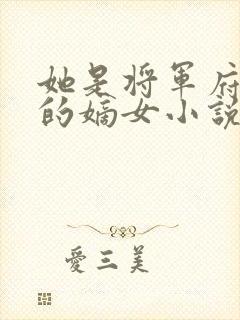 她是将軍府
的嫡女小說
愛三美